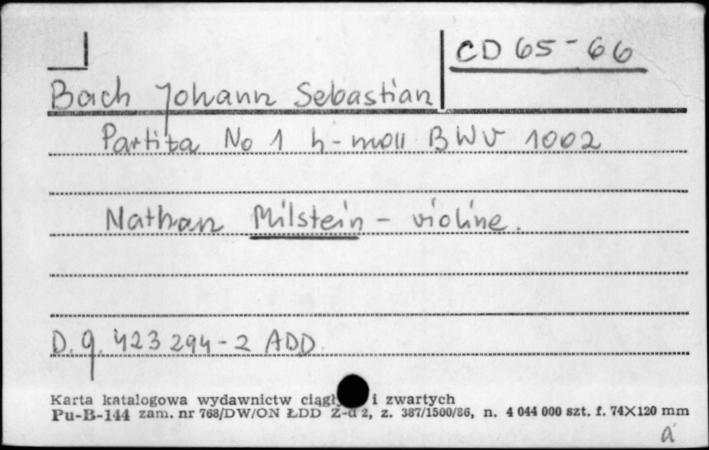 CD 65-66
Bach Johann Sebastian
Partita No 1 h-moll BWV 1002
Nathan Milstein - violine.
D.g. 423 294-2 ADD.
Karta katalogowa wydawnictw i zwartych
Pu-B-144 zam. nr 768/DW/ON ŁDD Z-d 2, z. 387/1500/86, n. 4 044 000 szt. f. 74X120 mm
a